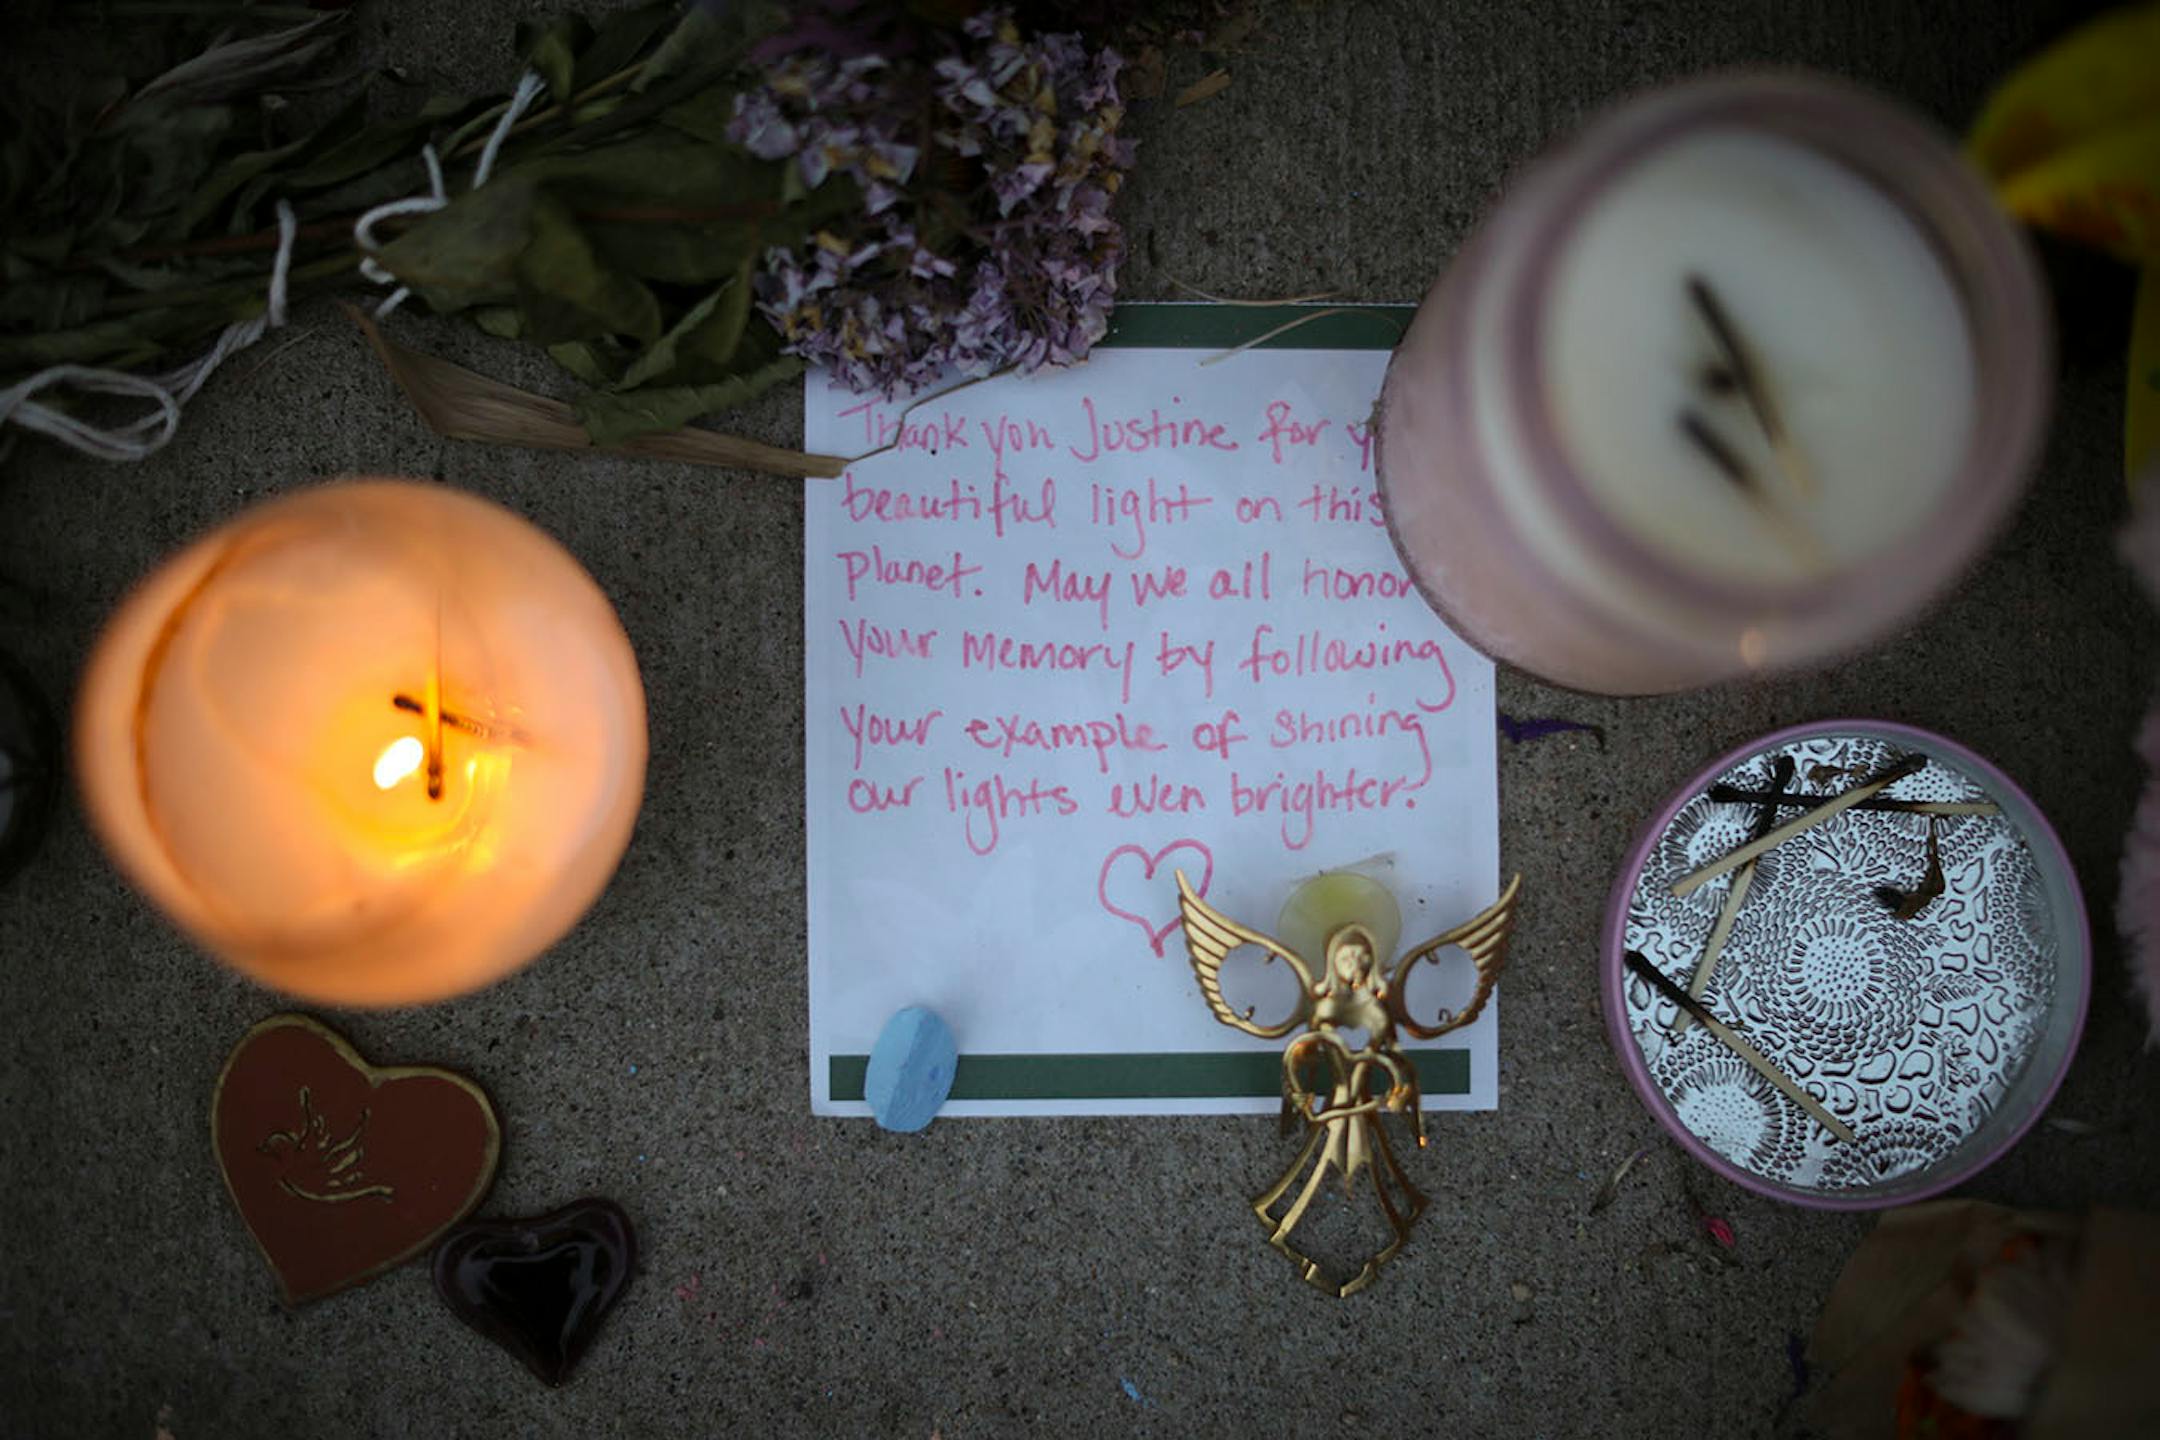 Thank you Justine for y
beautiful light on this
Planet. May we all honor
your memory by following
your example of shining
our lights even brighter.